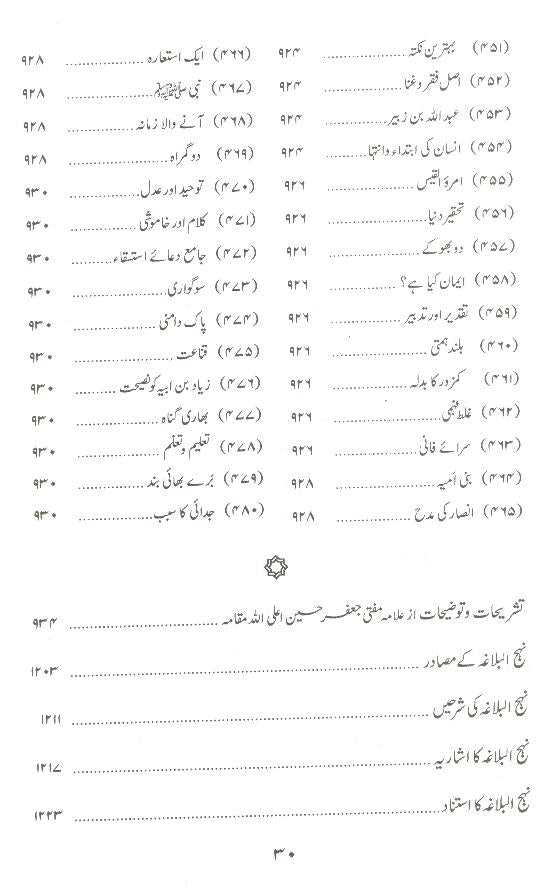 (۴۵۱) بہترین نکتہ ........ ۹۲۴
(۴۵۲) اصل فقر و غنا ........ ۹۲۴
(۴۵۳) عبد اللہ بن زبیر ........ ۹۲۴
(۴۵۴) انسان کی ابتداء و انتہا ........ ۹۲۴
(۴۵۵) امرؤ القیس ........ ۹۲۶
(۴۵۶) تحقیر دنیا ........ ۹۲۶
(۴۵۷) دو بھوکے ........ ۹۲۶
(۴۵۸) ایمان کیا ہے؟ ........ ۹۲۶
(۴۵۹) تقدیر اور تدبیر ........ ۹۲۶
(۴۶۰) بلند ہمتی ........ ۹۲۶
(۴۶۱) کمزور کا بدلہ ........ ۹۲۶
(۴۶۲) غلط فہمی ........ ۹۲۶
(۴۶۳) سرائے فانی ........ ۹۲۶
(۴۶۴) بنی اُمیہ ........ ۹۲۸
(۴۶۵) انصار کی مدح ........ ۹۲۸
(۴۶۶) ایک استعارہ ........ ۹۲۸
(۴۶۷) نبی ﷺ ........ ۹۲۸
(۴۶۸) آنے والا زمانہ ........ ۹۲۸
(۴۶۹) دو گمراہ ........ ۹۲۸
(۴۷۰) توحید اور عدل ........ ۹۳۰
(۴۷۱) کلام اور خاموشی ........ ۹۳۰
(۴۷۲) جامع دعائے استسقاء ........ ۹۳۰
(۴۷۳) سوگواری ........ ۹۳۰
(۴۷۴) پاک دامنی ........ ۹۳۰
(۴۷۵) قناعت ........ ۹۳۰
(۴۷۶) زیاد بن ابیہ کو نصیحت ........ ۹۳۰
(۴۷۷) بھاری گناہ ........ ۹۳۰
(۴۷۸) تعلیم و تعلم ........ ۹۳۰
(۴۷۹) بُرے بھائی بند ........ ۹۳۰
(۴۸۰) جدائی کا سبب ........ ۹۳۰
تشریحات و توضیحات از علامہ مفتی جعفر حسین اعلی اللہ مقامہ ........ ۹۳۴
نہج البلاغہ کے مصادر ........ ۱۲۰۳
نہج البلاغہ کی شرحیں ........ ۱۲۱۱
نہج البلاغہ کا اشاریہ ........ ۱۲۱۷
نہج البلاغہ کا استناد ........ ۱۲۲۳
۳۰